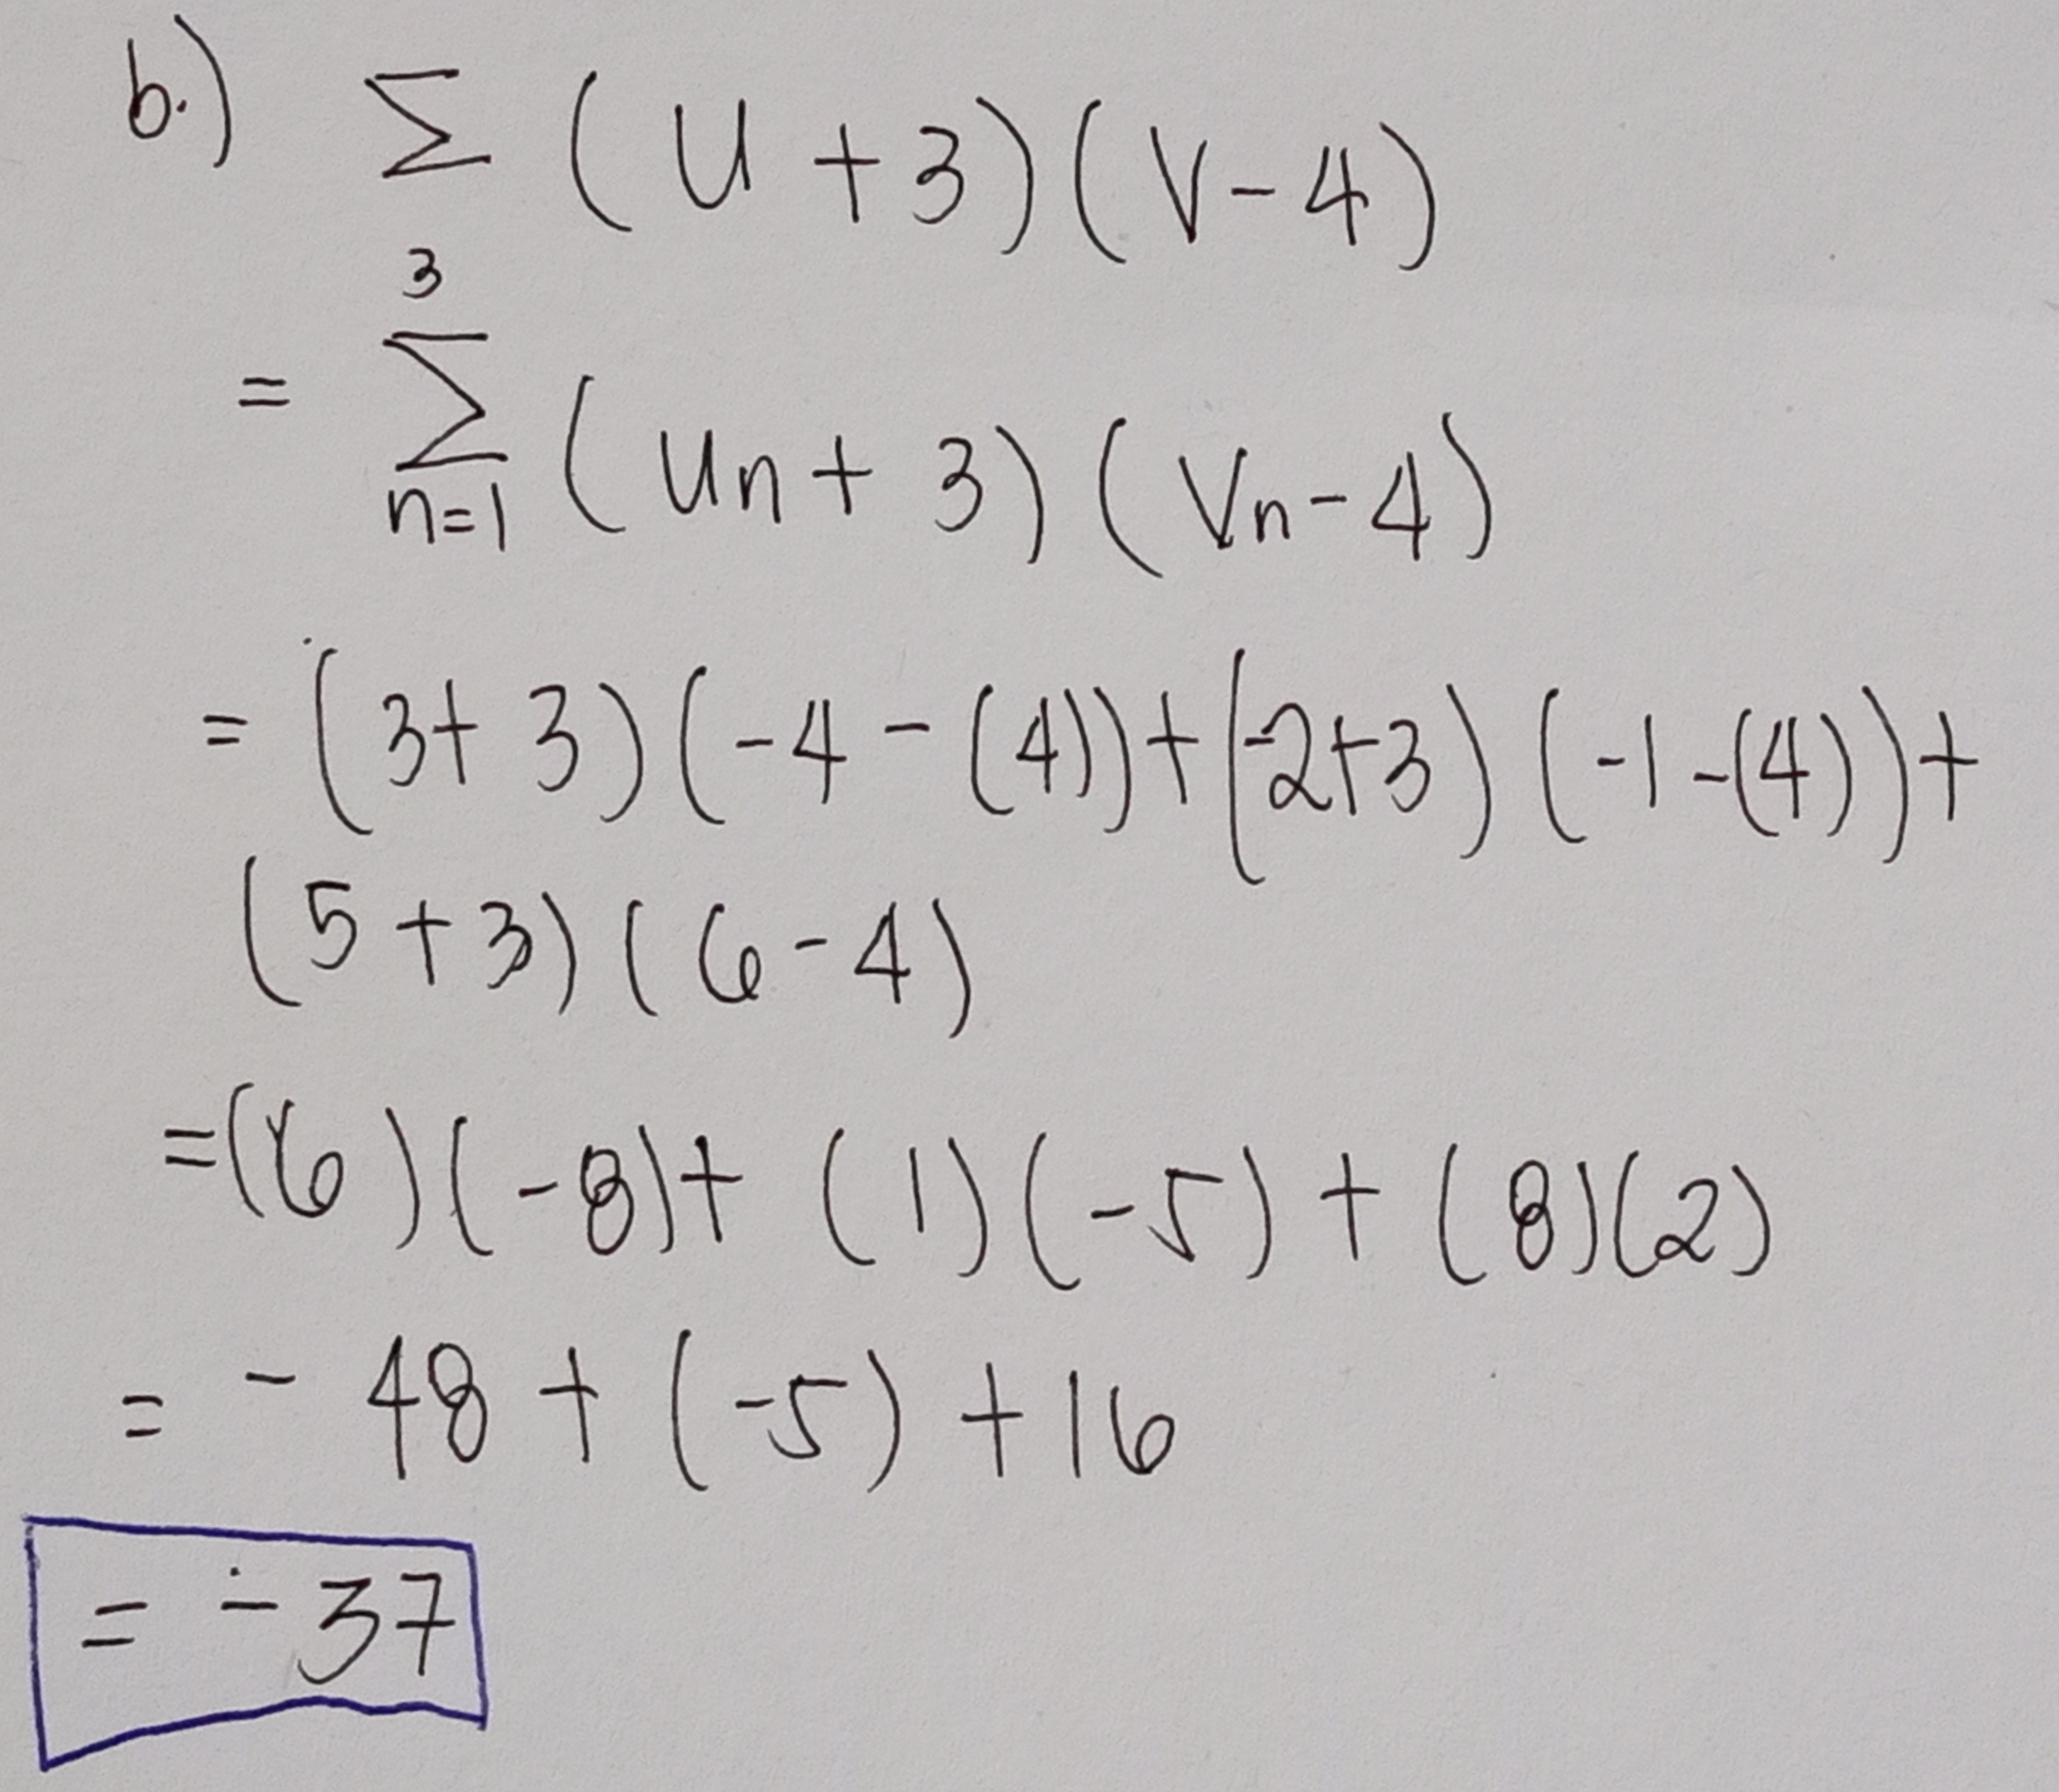 b.) Σ (U + 3)(V - 4)
3
= Σ (Un + 3)(Vn - 4)
n=1
= (3 + 3)(-4 - (4)) + (-2+3)(-1-(4)) +
(5 + 3)(6 - 4)
= (6)(-8) + (1)(-5) + (8)(2)
= - 48 + (-5) + 16
= - 37